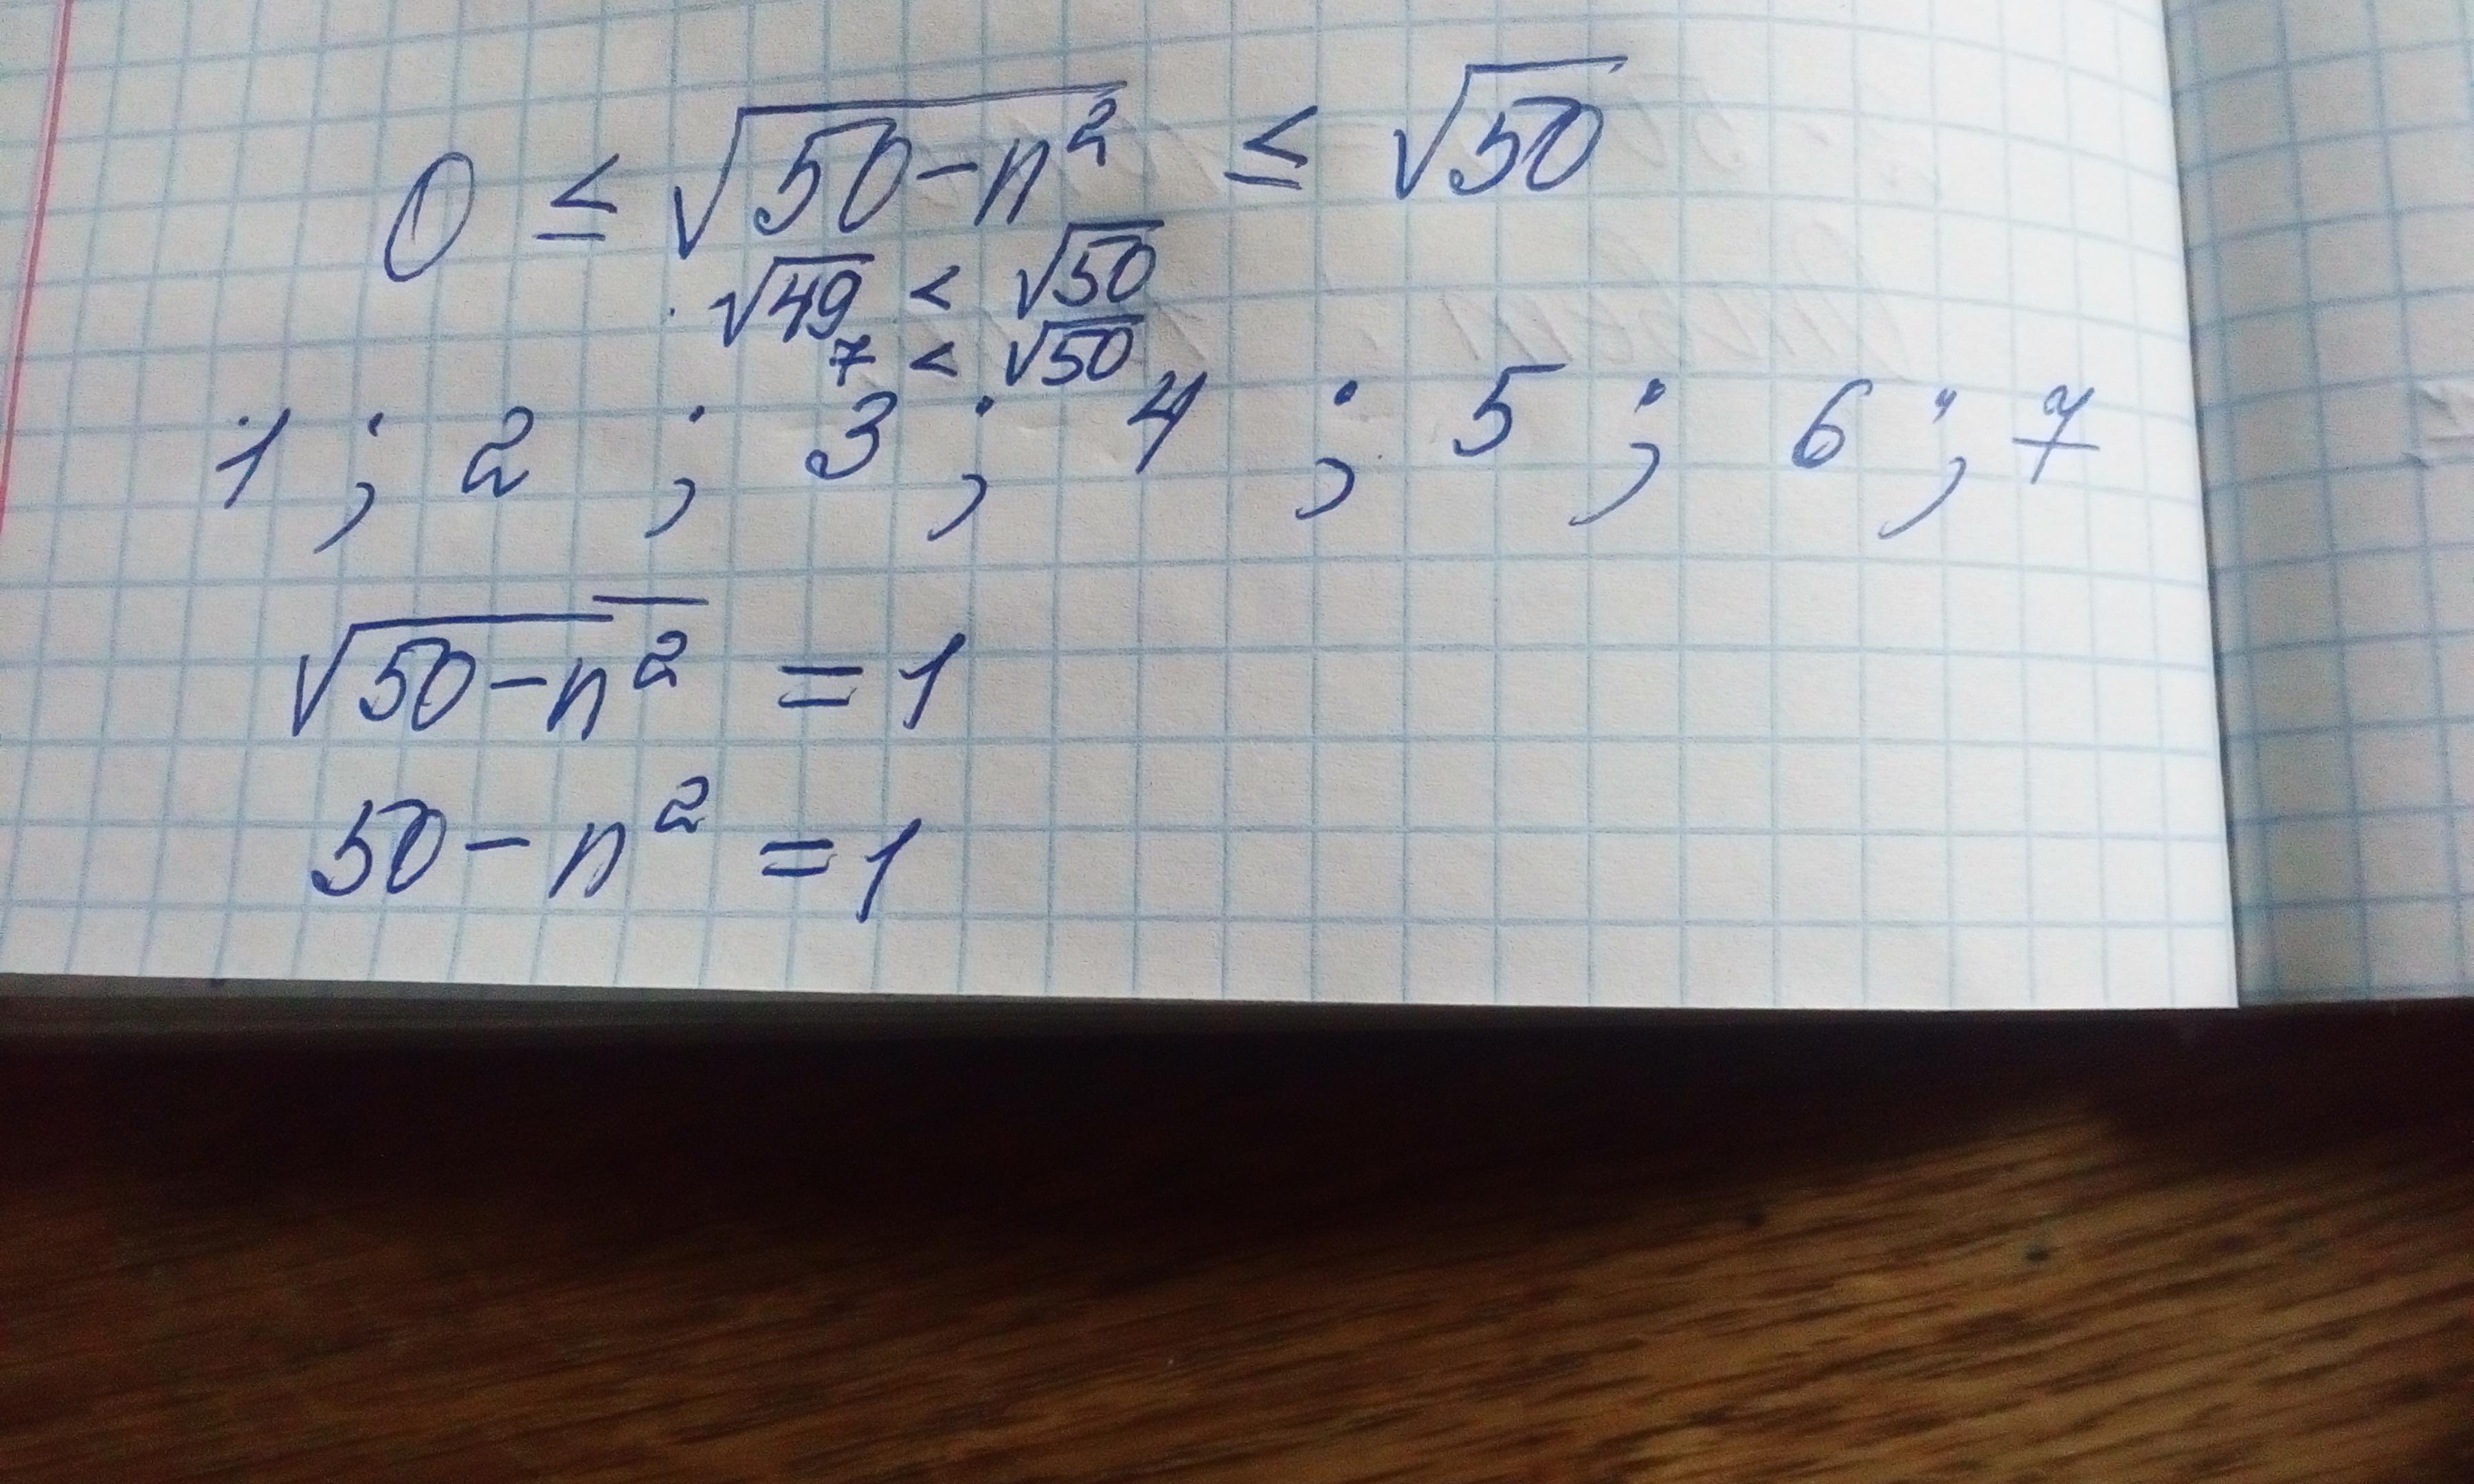 0 ≤ √(50-n²) ≤ √50
√49 < √50
7 < √50
1 ; 2 ; 3 ; 4 ; 5 ; 6 ; 7
√(50-n²) = 1
50-n² = 1